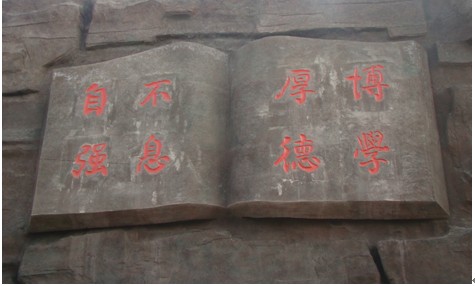 自强
不息
厚德
博學